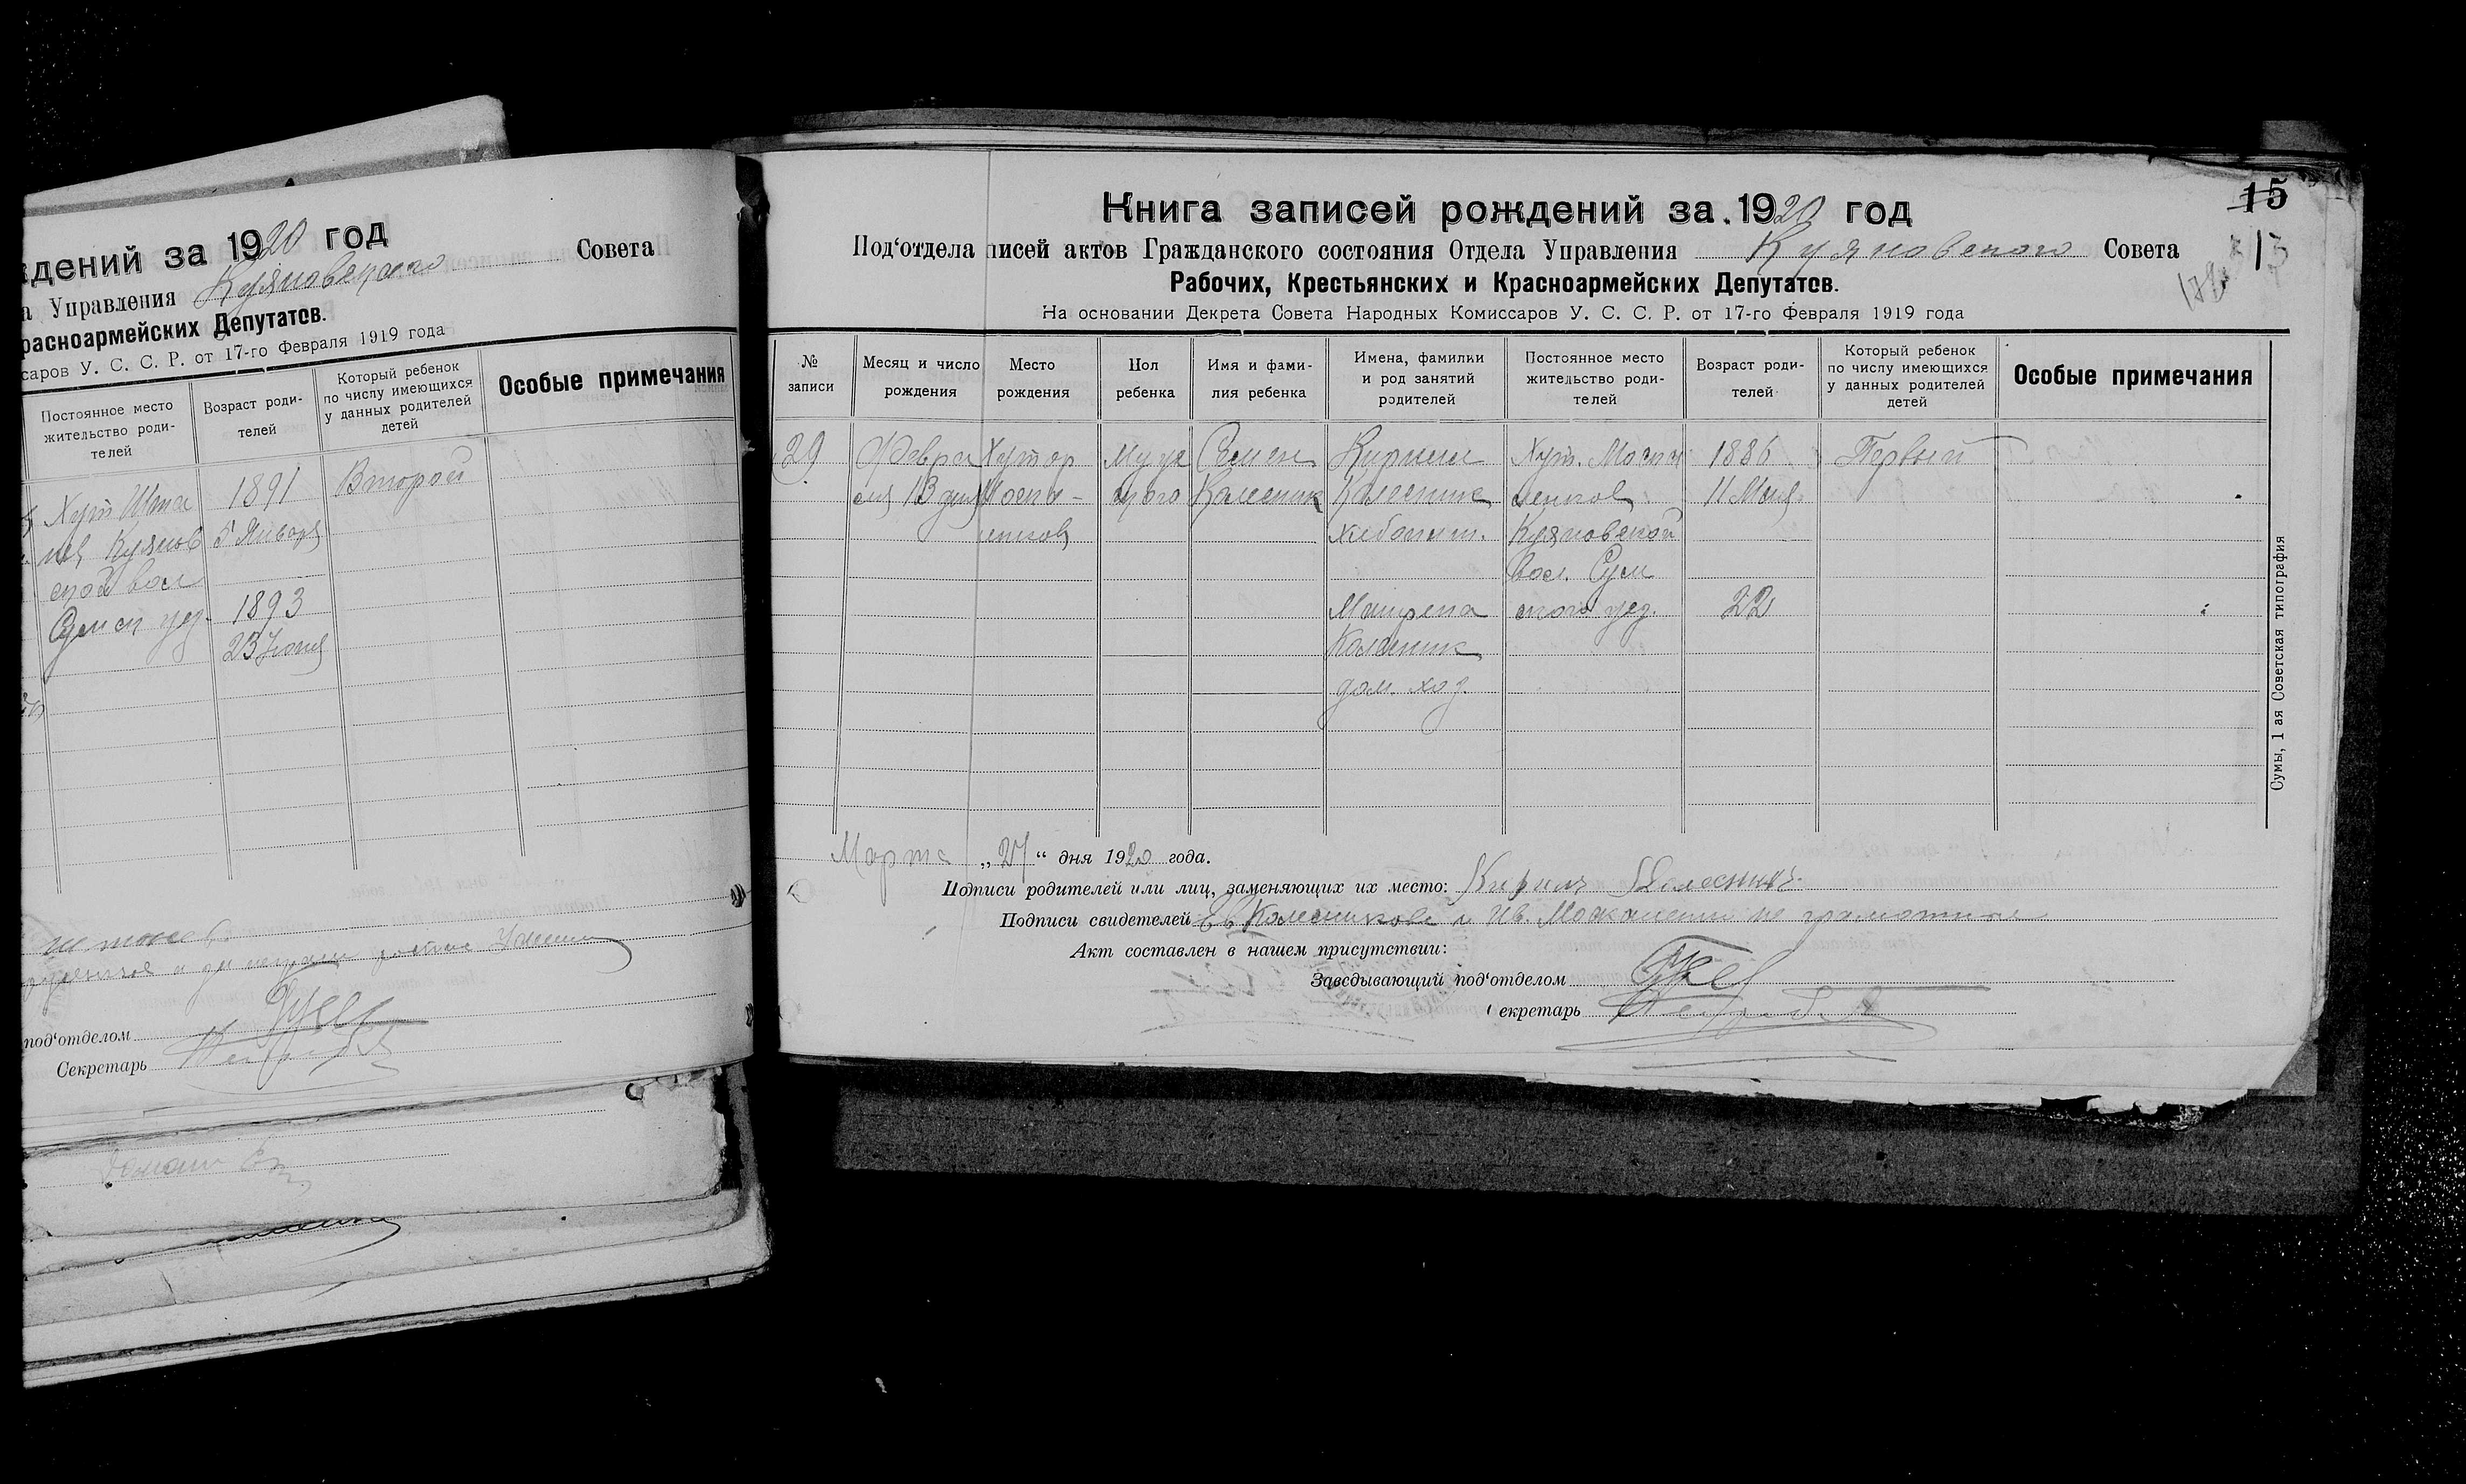 дений за 1920 год
а Управления Куяновского Совета
расноармейских Депутатов.
саров У. С. С. Р. от 17-го Февраля 1919 года
Постоянное место жительство роди-телей
Возраст роди-телей
Который ребенок по числу имеющихся у данных родителей детей
Особые примечания
Хут
1891
Второй
Куянов
5 Января
ской вол
Сумск уез.
1893
23 Июня
под'отделом
Секретарь
15
Книга записей рождений за 1920 год
Под'отдела писей актов Гражданского состояния Отдела Управления Куяновского Совета
Рабочих, Крестьянских и Красноармейских Депутатов.
На основании Декрета Совета Народных Комиссаров У. С. С. Р. от 17-го Февраля 1919 года
№ записи
Месяц и число рождения
Место рождения
Пол ребенка
Имя и фами-лия ребенка
Имена, фамилии и род занятий родителей
Постоянное место жительство роди-телей
Возраст роди-телей
Который ребенок по числу имеющихся у данных родителей детей
Особые примечания
29
Февра
Хутор
Муж
Семен
Кирилл
Хут. Моска
1886
Первый
ля 13 дня
Моска-
ского
Колесник
Колесник
ленков
11 Мая
ленков
хлебопаш.
Куяновской
Вол. Сум
Матрена
ского уез.
22
Колесник
дом. хоз.
Марта „27“ дня 1920 года.
Подписи родителей или лиц, заменяющих их место: Кирилъ Колесникъ
Подписи свидетелей Колесников и Ив. Москаленко не грамотные
Акт составлен в нашем присутствии:
Заведывающий под'отделом
екретарь
Сумы, 1 ая Советская типография